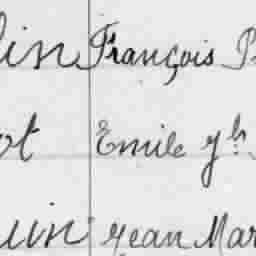 lin François P
ot Emile yh
uin Jean Mar